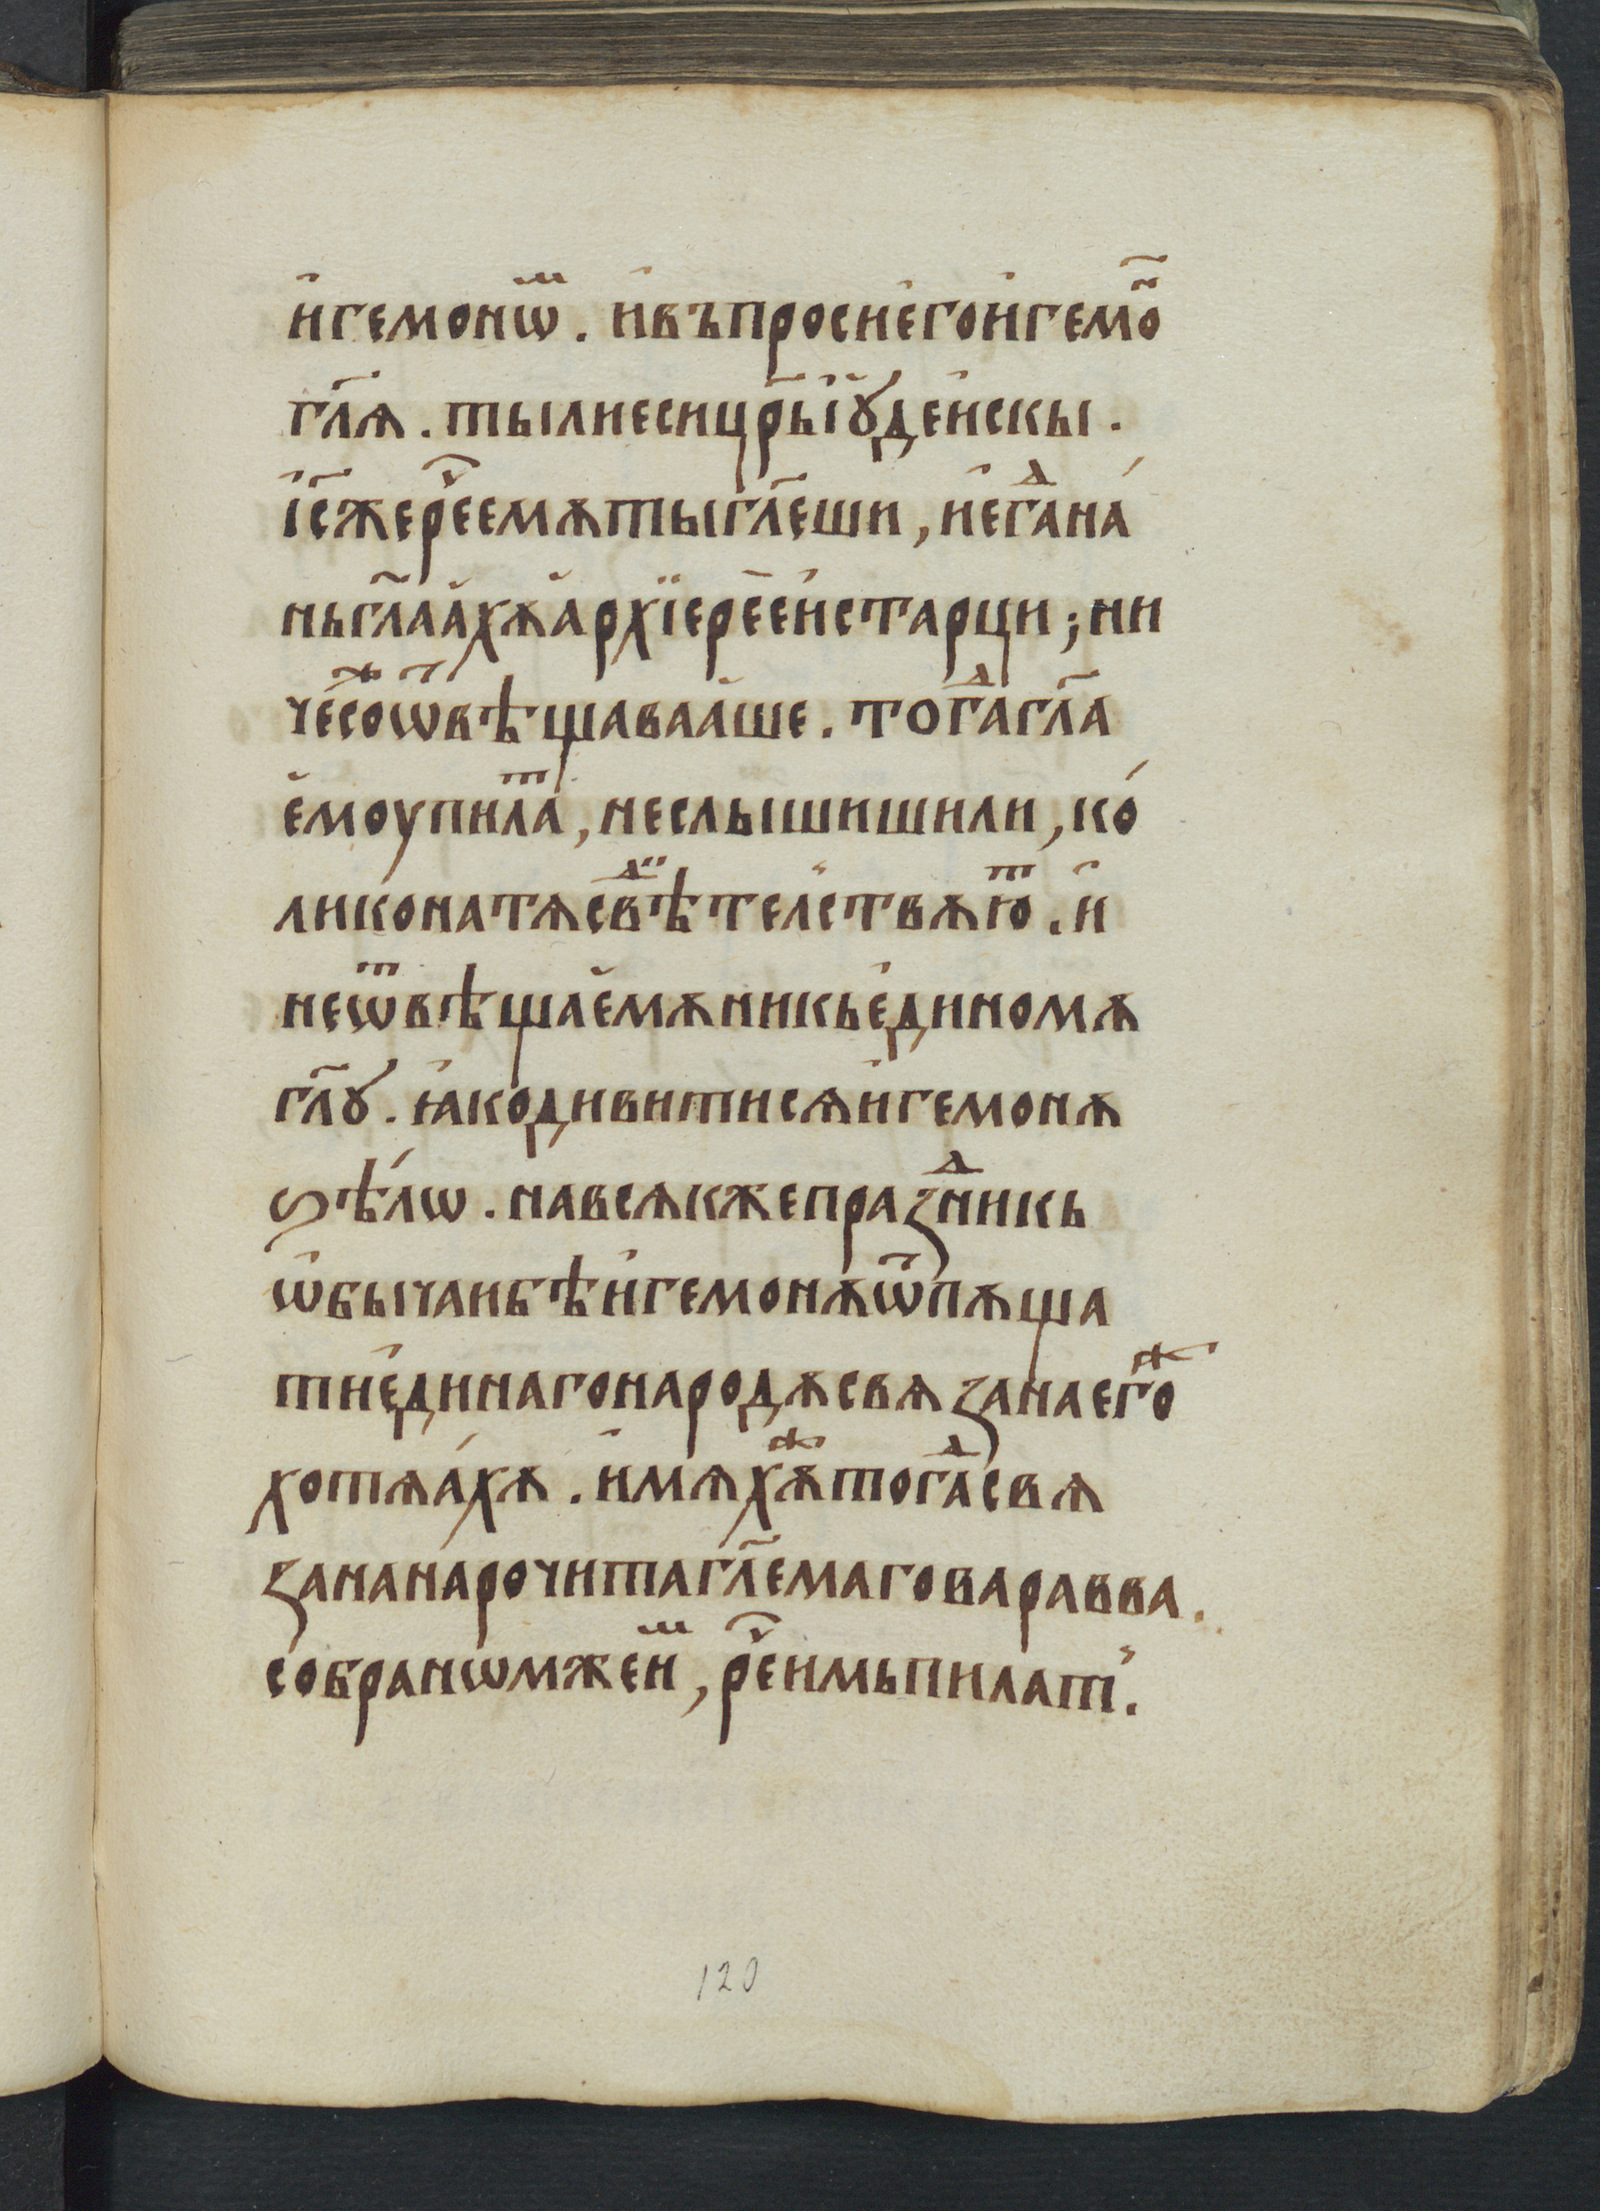 и҆гемонѡⷨ. и҆въпроси є҆го и҆гемо҃
гл҃ѧ. ты ли еси цр҃ь і҆ꙋдеи҆скы.
і҆с҃ же рⷱ҇е емѫ ты гл҃еши, и҆ є҆гⷣа на́
нь гл҃аа҆хѫ а҆рхїере́е и҆ старци; ни
че́соⷤ ѿвѣщаваа҆ше. тогⷣа гл҃а
є҆моу пилаⷮ, не слышиши ли, ко́
лико на тѧ свⷣѣтел̾ствѫюⷮ. и҆
не ѿвѣща є҆мѫ ни кь є҆диномѫ
гл҃ꙋ. ꙗ҆ко дивитисѧ и҆гемонѫ
ѕѣ́лѡ. на всѧк же празⷣникь
ѡ҆бычаи бѣ и҆гемонѫ ѿпѫща
ти є҆динаго народѫ свѧзана егоⷤ
хотѧа́хѫ. и҆мѧхѫⷤ тогⷣа свѧ
зана наро́чита гл҃емаго варавва.
собранѡм же иⷨ, рⷱ҇е имь пилат̾.
120